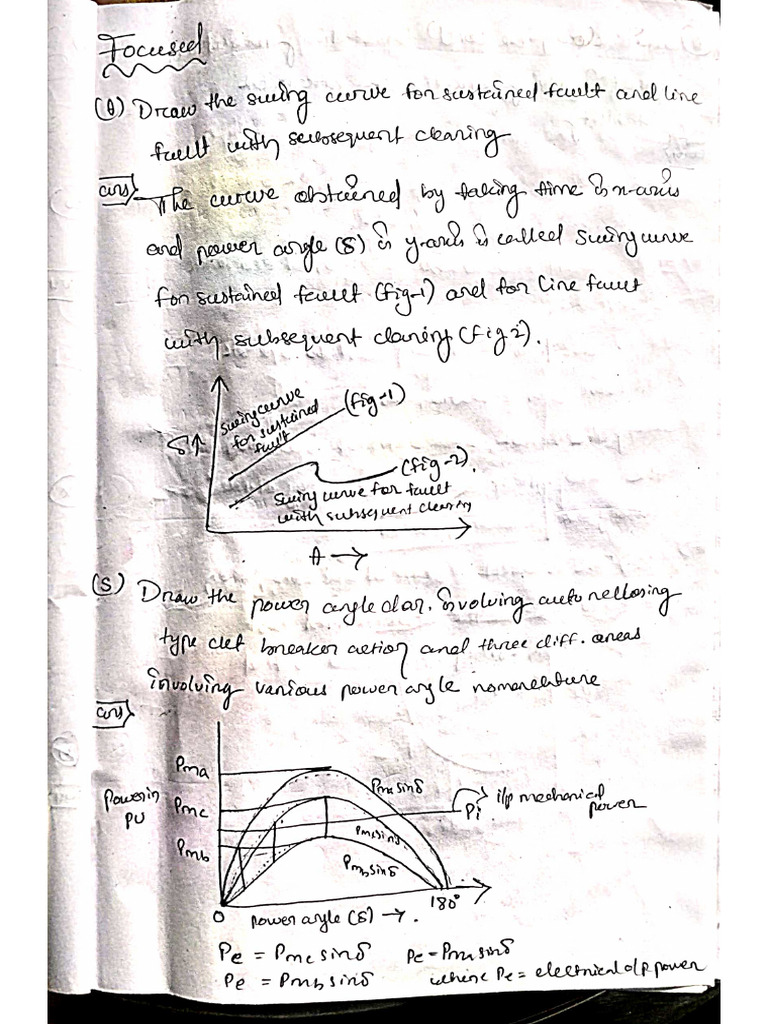 Focused
(θ) Draw the swing curve for sustained fault and line
fault with subsequent clearing
ans) The curve obtained by taking time in x-axis
and power angle (δ) in y-axis is called swing curve
for sustained fault (fig-1) and for line fault
with subsequent clearing (fig 2).
swing curve
for sustained
fault
(fig-1)
δ↑
(fig-2).
swing curve for fault
with subsequent clearing
t →
(S) Draw the power angle diar. involving auto reclosing
type ckt breaker action and three diff. areas
involving various power angle nomenclture
ans)
Pma
Pma sinδ
Power in
PU
Pmc
Pi
i/p mechanical
power
Pmc sinδ
Pmb
Pmb sinδ
0
180°
Power angle (δ) →.
Pe = Pmc sinδ Pe = Pma sinδ
Pe = Pmb sinδ where Pe = electrical o/p power